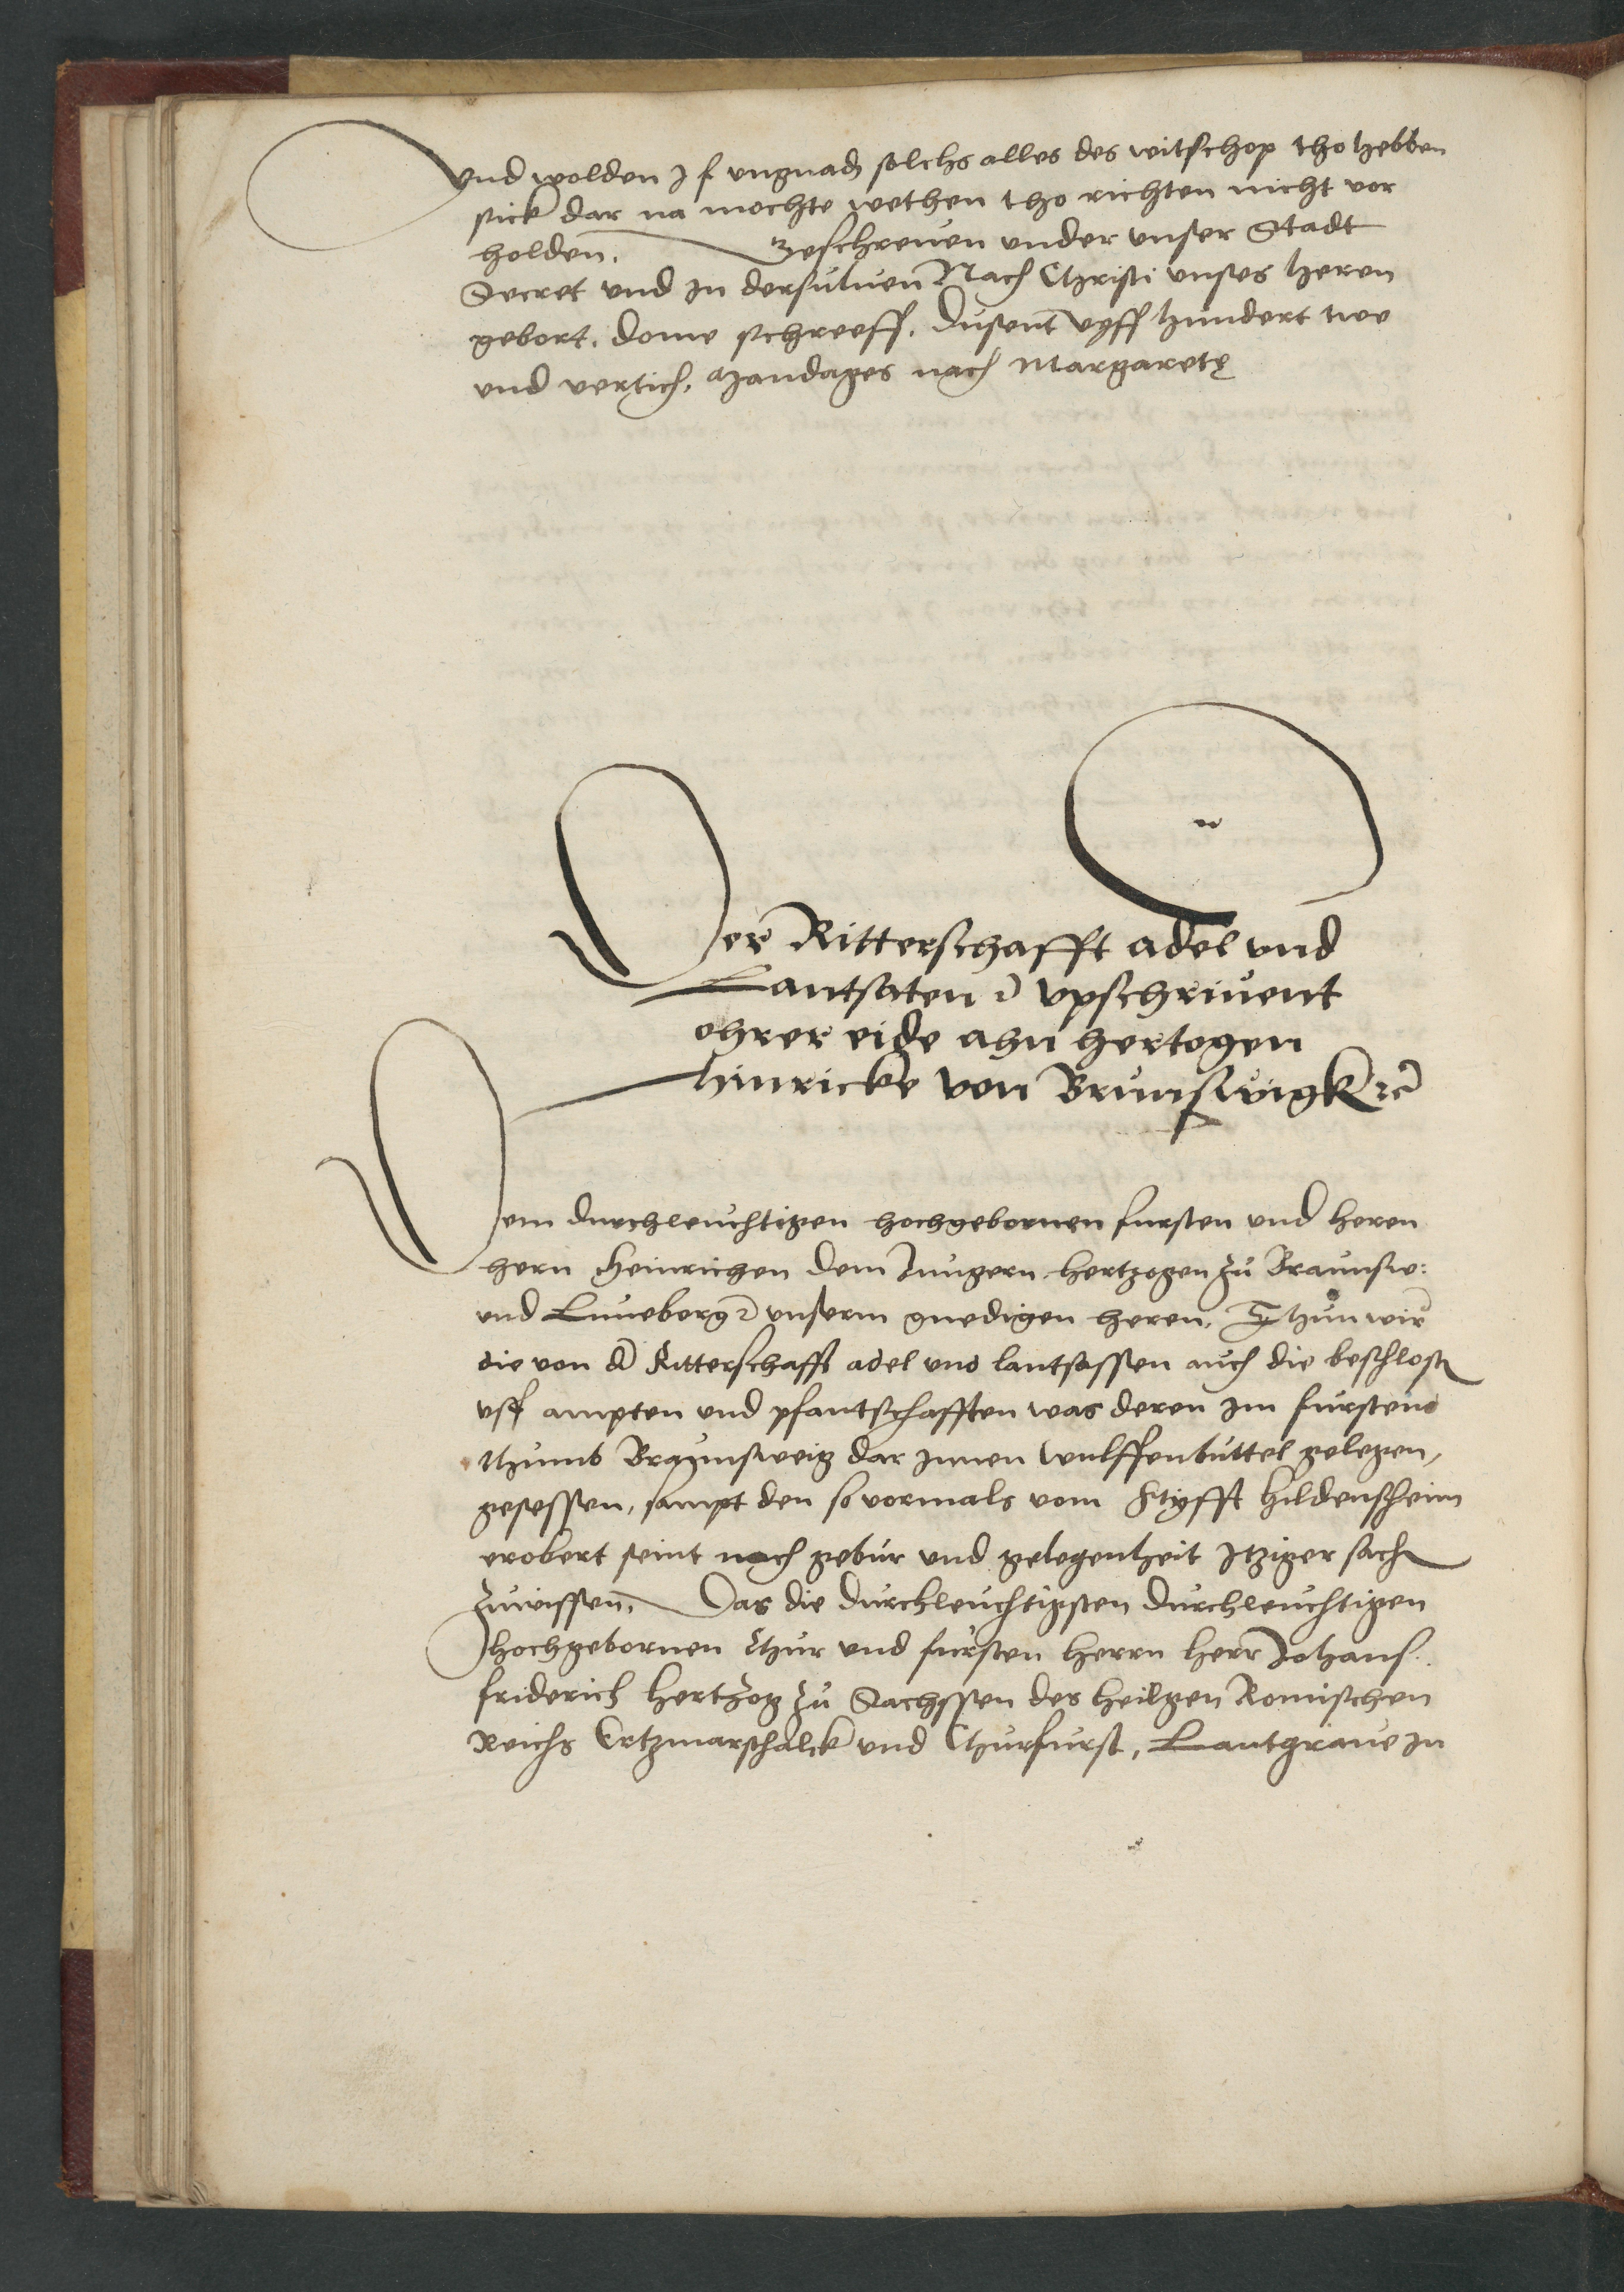 Vnd wolden J f vngnad solchs alles des witschop tho hebben
sick dar na mochte wethen tho richten nicht vor
holden. Geschreuen vnder vnser Stadt
Secret vnd in dersuluen Nach Christi vnses heren
gebort. dome schreeff. dusent vyff hundert twe
vnd vertich. Mandages nach Margarete
Der Ritterschafft adel vnd
Lantsaten vpschriuent
ohrer eide ahn hertogen
Hinricke von Brunswigk ꝛc
Dem durchleuchtigen hochgebornen fursten vnd heren
hern Heinrichen dem Jungern hertzogen zu Braunsw:
vnd Luneborg ꝛc vnserm gnedigen heren, Thun wir
die von d Ritterschafft adel vnd lantsassen auch die beschloss
vff ampten vnd pfantschafften was deren im fursten
thumb Braunsweig dar innen Wulffenbuttel gelegen,
gesessen, sampt den so vormals vom Styfft Hildensheim
erobert seint nach gebur vnd gelegenheit itziger sach
zuwissen. Das die durchleuchtigsten durchleuchtigen
hochgebornen Chur vnd fursten herrn herr Johans
friderich hertzog zu Sachssen des heilgen Romischen
Reichs Ertzmarschalck vnd Churfurst, Lantgraue in